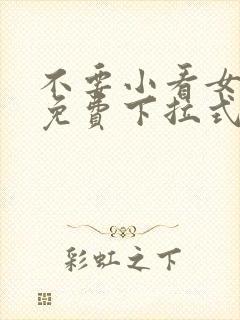 不要小看女
免費下拉式
彩虹之下